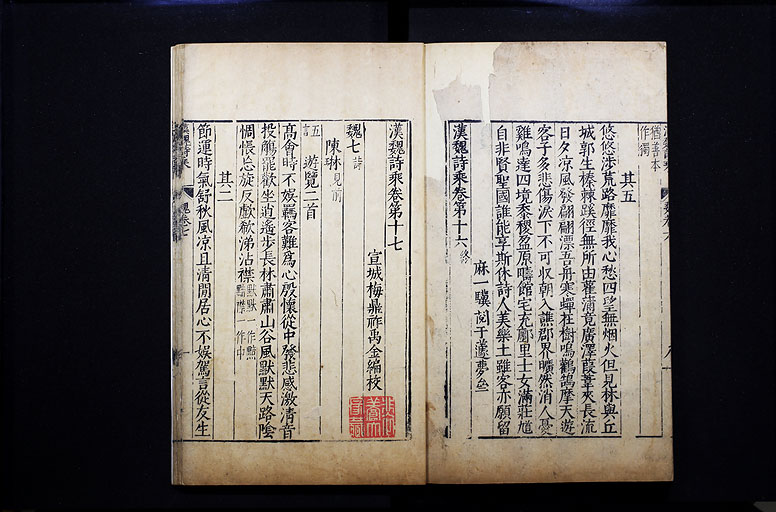 猶善本
作獨
其五
悠悠涉荒路靡靡我心愁四望無烟火但見林與丘
城郭生榛棘蹊徑無所由雚蒲竟廣澤葭葦夾長流
日夕涼風發翩翩漂吾舟寒蟬在樹鳴鸛鵠摩天遊
客子多悲傷淚下不可収朝入譙郡界曠然消人憂
雞鳴達四境黍稷盈原疇館宅充廛里士女滿莊馗
自非賢聖國誰能享斯休詩人美樂土雖客亦願留
麻一驥閱于蘧夢
漢魏詩乘卷第十六終
漢魏詩乘卷第十七
宣城梅鼎祚禹金編校
魏七詩
陳琳見前
五言
遊覽二首
高會時不娯羈客難爲心殷懷從中發悲感激清音
投觴罷歡坐逍遙步長林肅肅山谷風默默天路陰
惆悵忘旋反歔欷涕沾襟默默一作黯黯襟一作巾
其二
節運時氣舒秋風凉且清閒居心不娯駕言從友生
漢魏詩乘
魏卷七